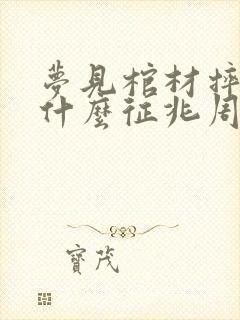 夢見棺材摔
什麼征兆周
寶茂